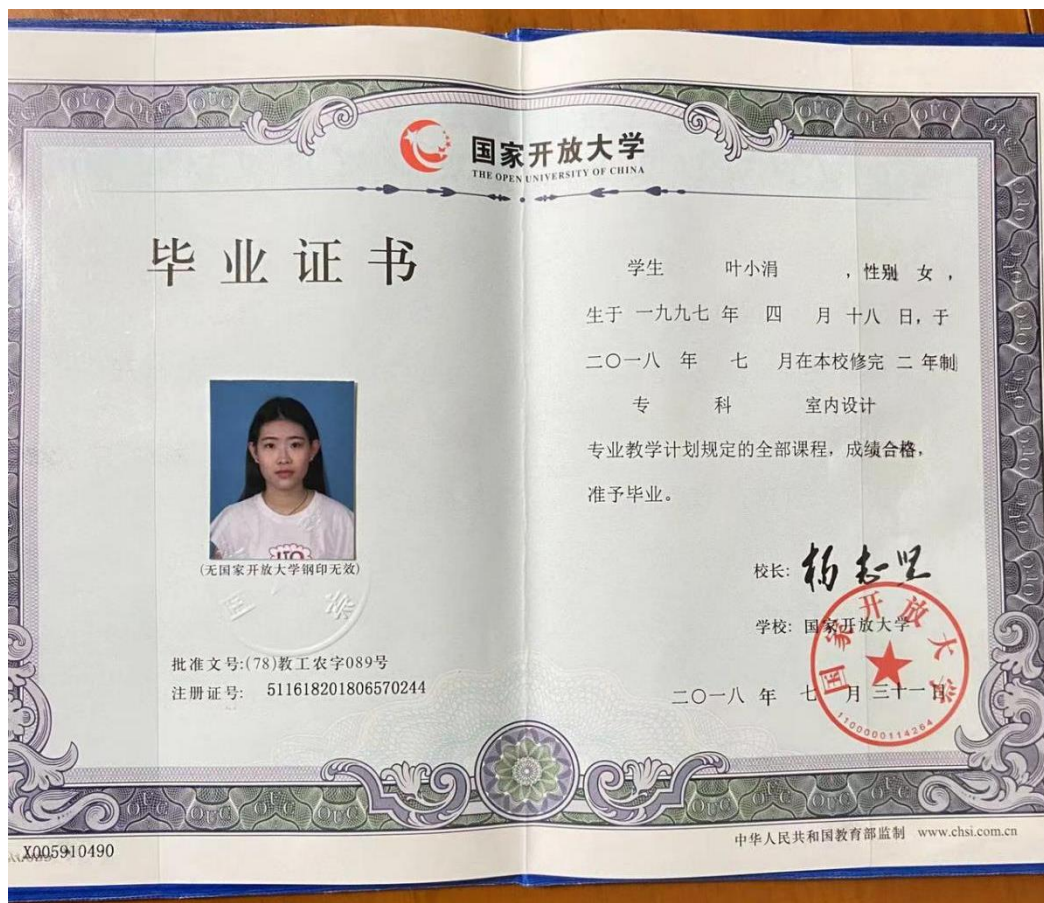 国家开放大学
THE OPEN UNIVERSITY OF CHINA
毕业证书
(无国家开放大学钢印无效)
批准文号:(78)教工农字089号
注册证号: 511618201806570244
X005910490
学生 叶小涓 ,性别 女,
生于 一九九七 年 四 月 十八 日,于
二〇一八 年 七 月在本校修完 二 年制
专 科 室内设计
专业教学计划规定的全部课程,成绩合格,
准予毕业。
校长: 杨志坚
学校: 国家开放大学
二〇一八 年 七 月 三十一 日
国家开放大学
1100000114264
中华人民共和国教育部监制 www.chsi.com.cn